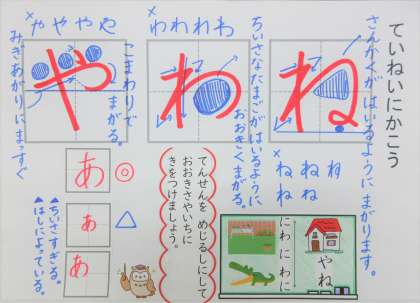 ていねいにかこう
さんかくがはいるようにまがります。
ね
×
ね ね ね
ね ね
ちいさなたまごがはいるように
おおきくまがる。
×
わ わ わ わ
わ
×
や や や や
こまわりで
まがる。
や
みぎあがりにまっすぐ
やね
にわ にわに
てんせんを めじるしにして
おおきさやいちに
きをつけましょう。
あ ◎
あ △
あ
▲ちいさすぎる。
▲はしによっている。